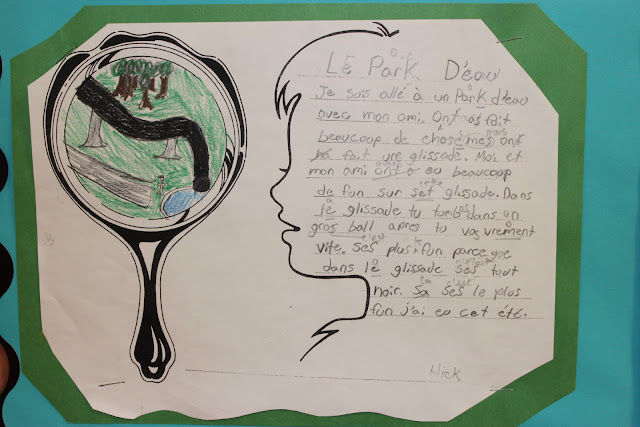 Le Park D'eau
Je suis allé à un Park d'eau
avec mon ami. Ont as fait
beaucoup de chose mes ont
fait une glissade. Moi et
mon ami ont eu beaucoup
de fun sur set glissade. Dans
le glissade tu tombe dans un
gros ball apres tu vas vrement
vite. Ses plus fun parce que
dans le glissade ses tout
noir. Sa ses le plus
fun j'ai eu cet été.